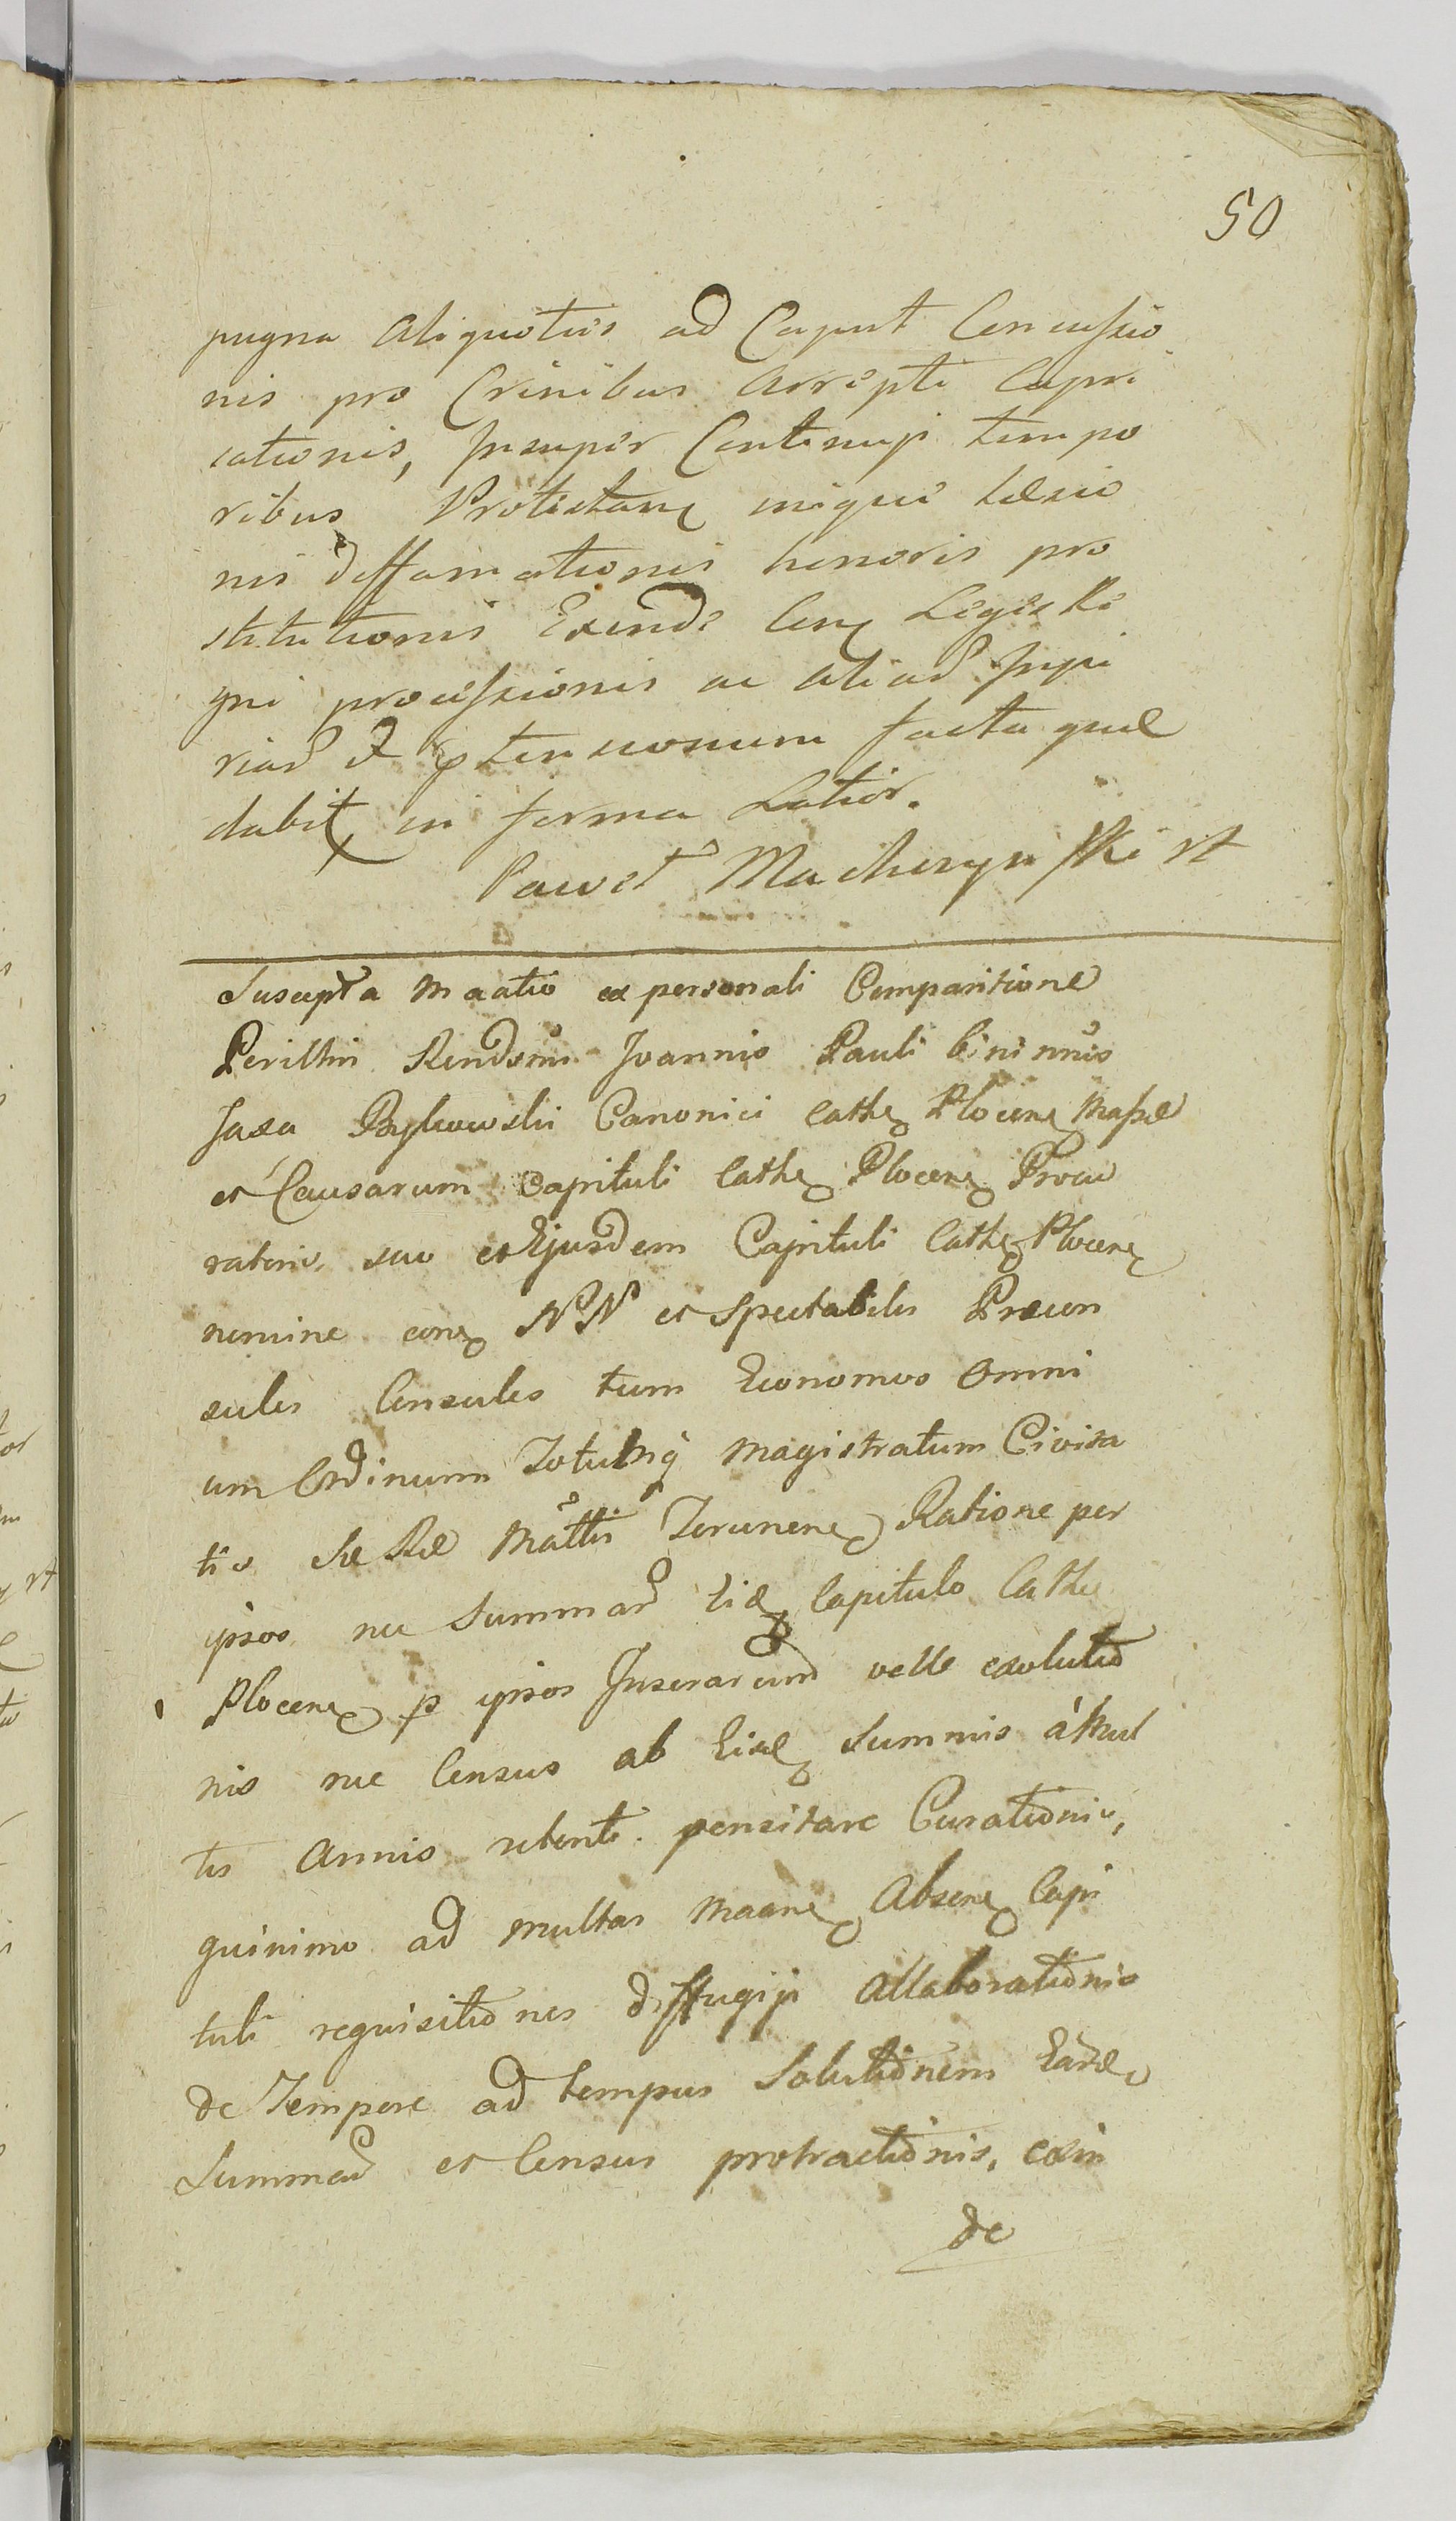 50
pugna aliquoties ad Caput Concussio
nis pro Crinibus arrepti Capri
cationis, Insuper Continuji tempo
ribus Protestane inique Læsio
nis diffamationis honoris pro
stitutionis Exinde Legis Re
gni processionis ac aliad Inju
riad & tensionum facta quæ
dabit in forma Latior.
Paweł Macherzynski
Suscepta Maatio ex personali Comparitione
Perillin Rendsmi Joannis Pauli binimis
Jaxa Bykowski Canonici Cathe Plocene
et Causarum Capituli Cathe Plocene Procu
ratoris, suo et Ejusdem Capituli Cathe Plocene
nomine cone NN et Spectabiles Præcon
sules Consules tum Economos Omni
um Ordinum Totumq Magistratum Civita
tis Sæ Ræ Mattis Torunene Ratione per
ipsos nec Summad Capitulo Cathe
Plocene p ipsos velle exolutio
nis nec Census ab Summis á Mul
tis Annis retenti pensitare Curationis,
quinimo ad multas Maane Absene Capi
tuli requisitiones diffugiji Allaborationis
de Tempore ad tempus Solutionem
Summad et Census protractionis, exin
de